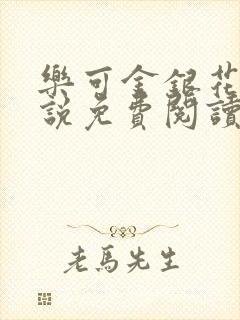 樂可金銀花
說免費閱讀
老馬先生